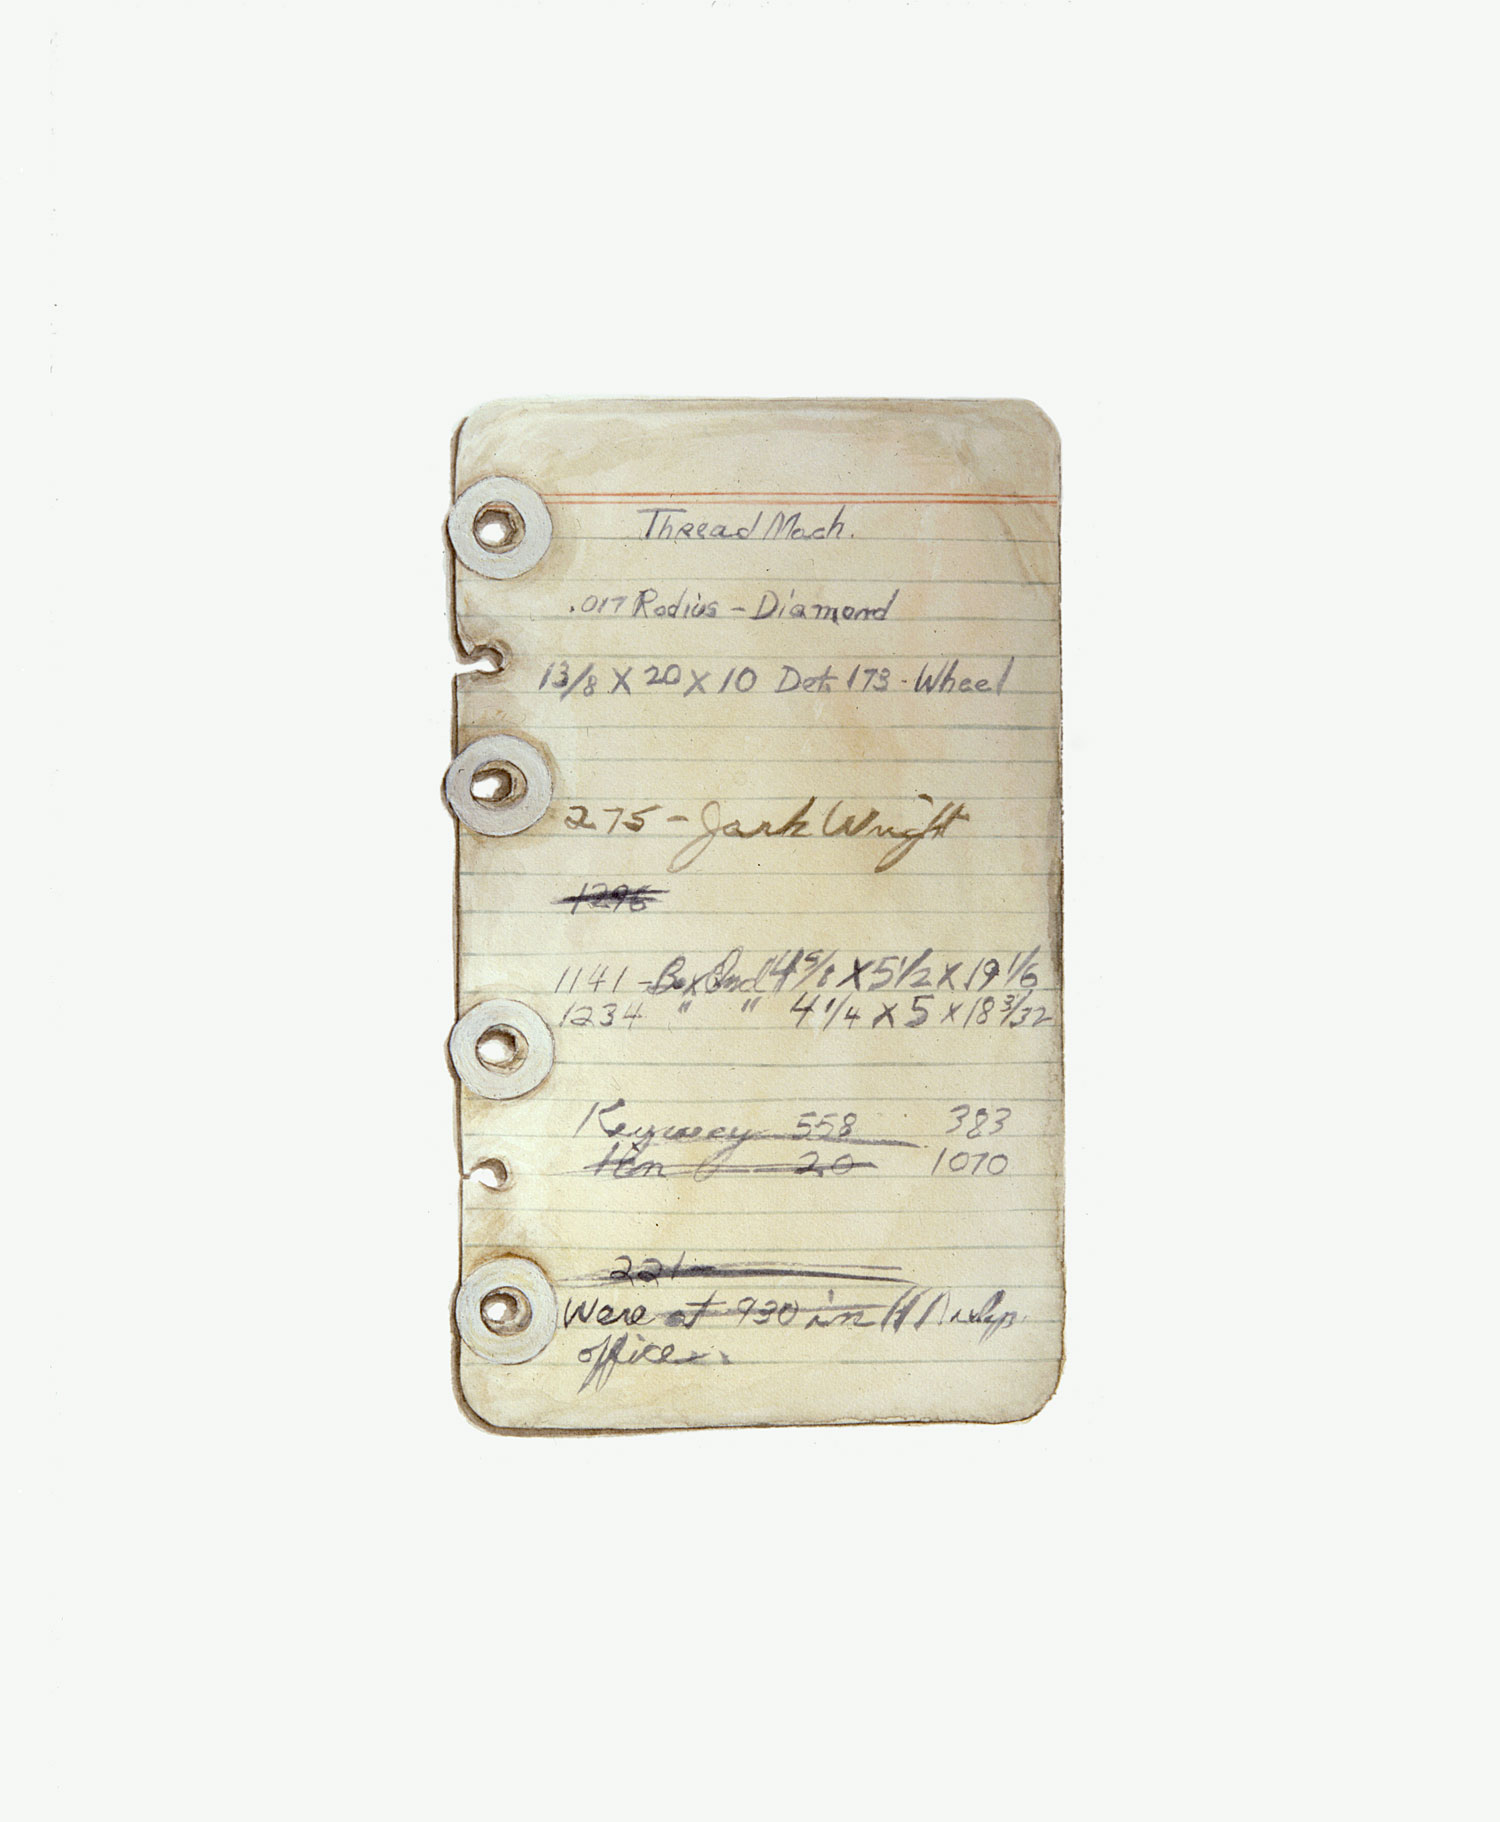 Thread Mach.
.017 Radius - Diamond
13/8 X 20 X 10 Det. 173 - Wheel
275 - Jack Wright
1296
1141 - Box End 4 5/8 X 5 1/2 X 19 1/6
1234 " " 4 1/4 X 5 X 18 3/32
Keyway 558 383
20 1070
221
Were at 930 in
office